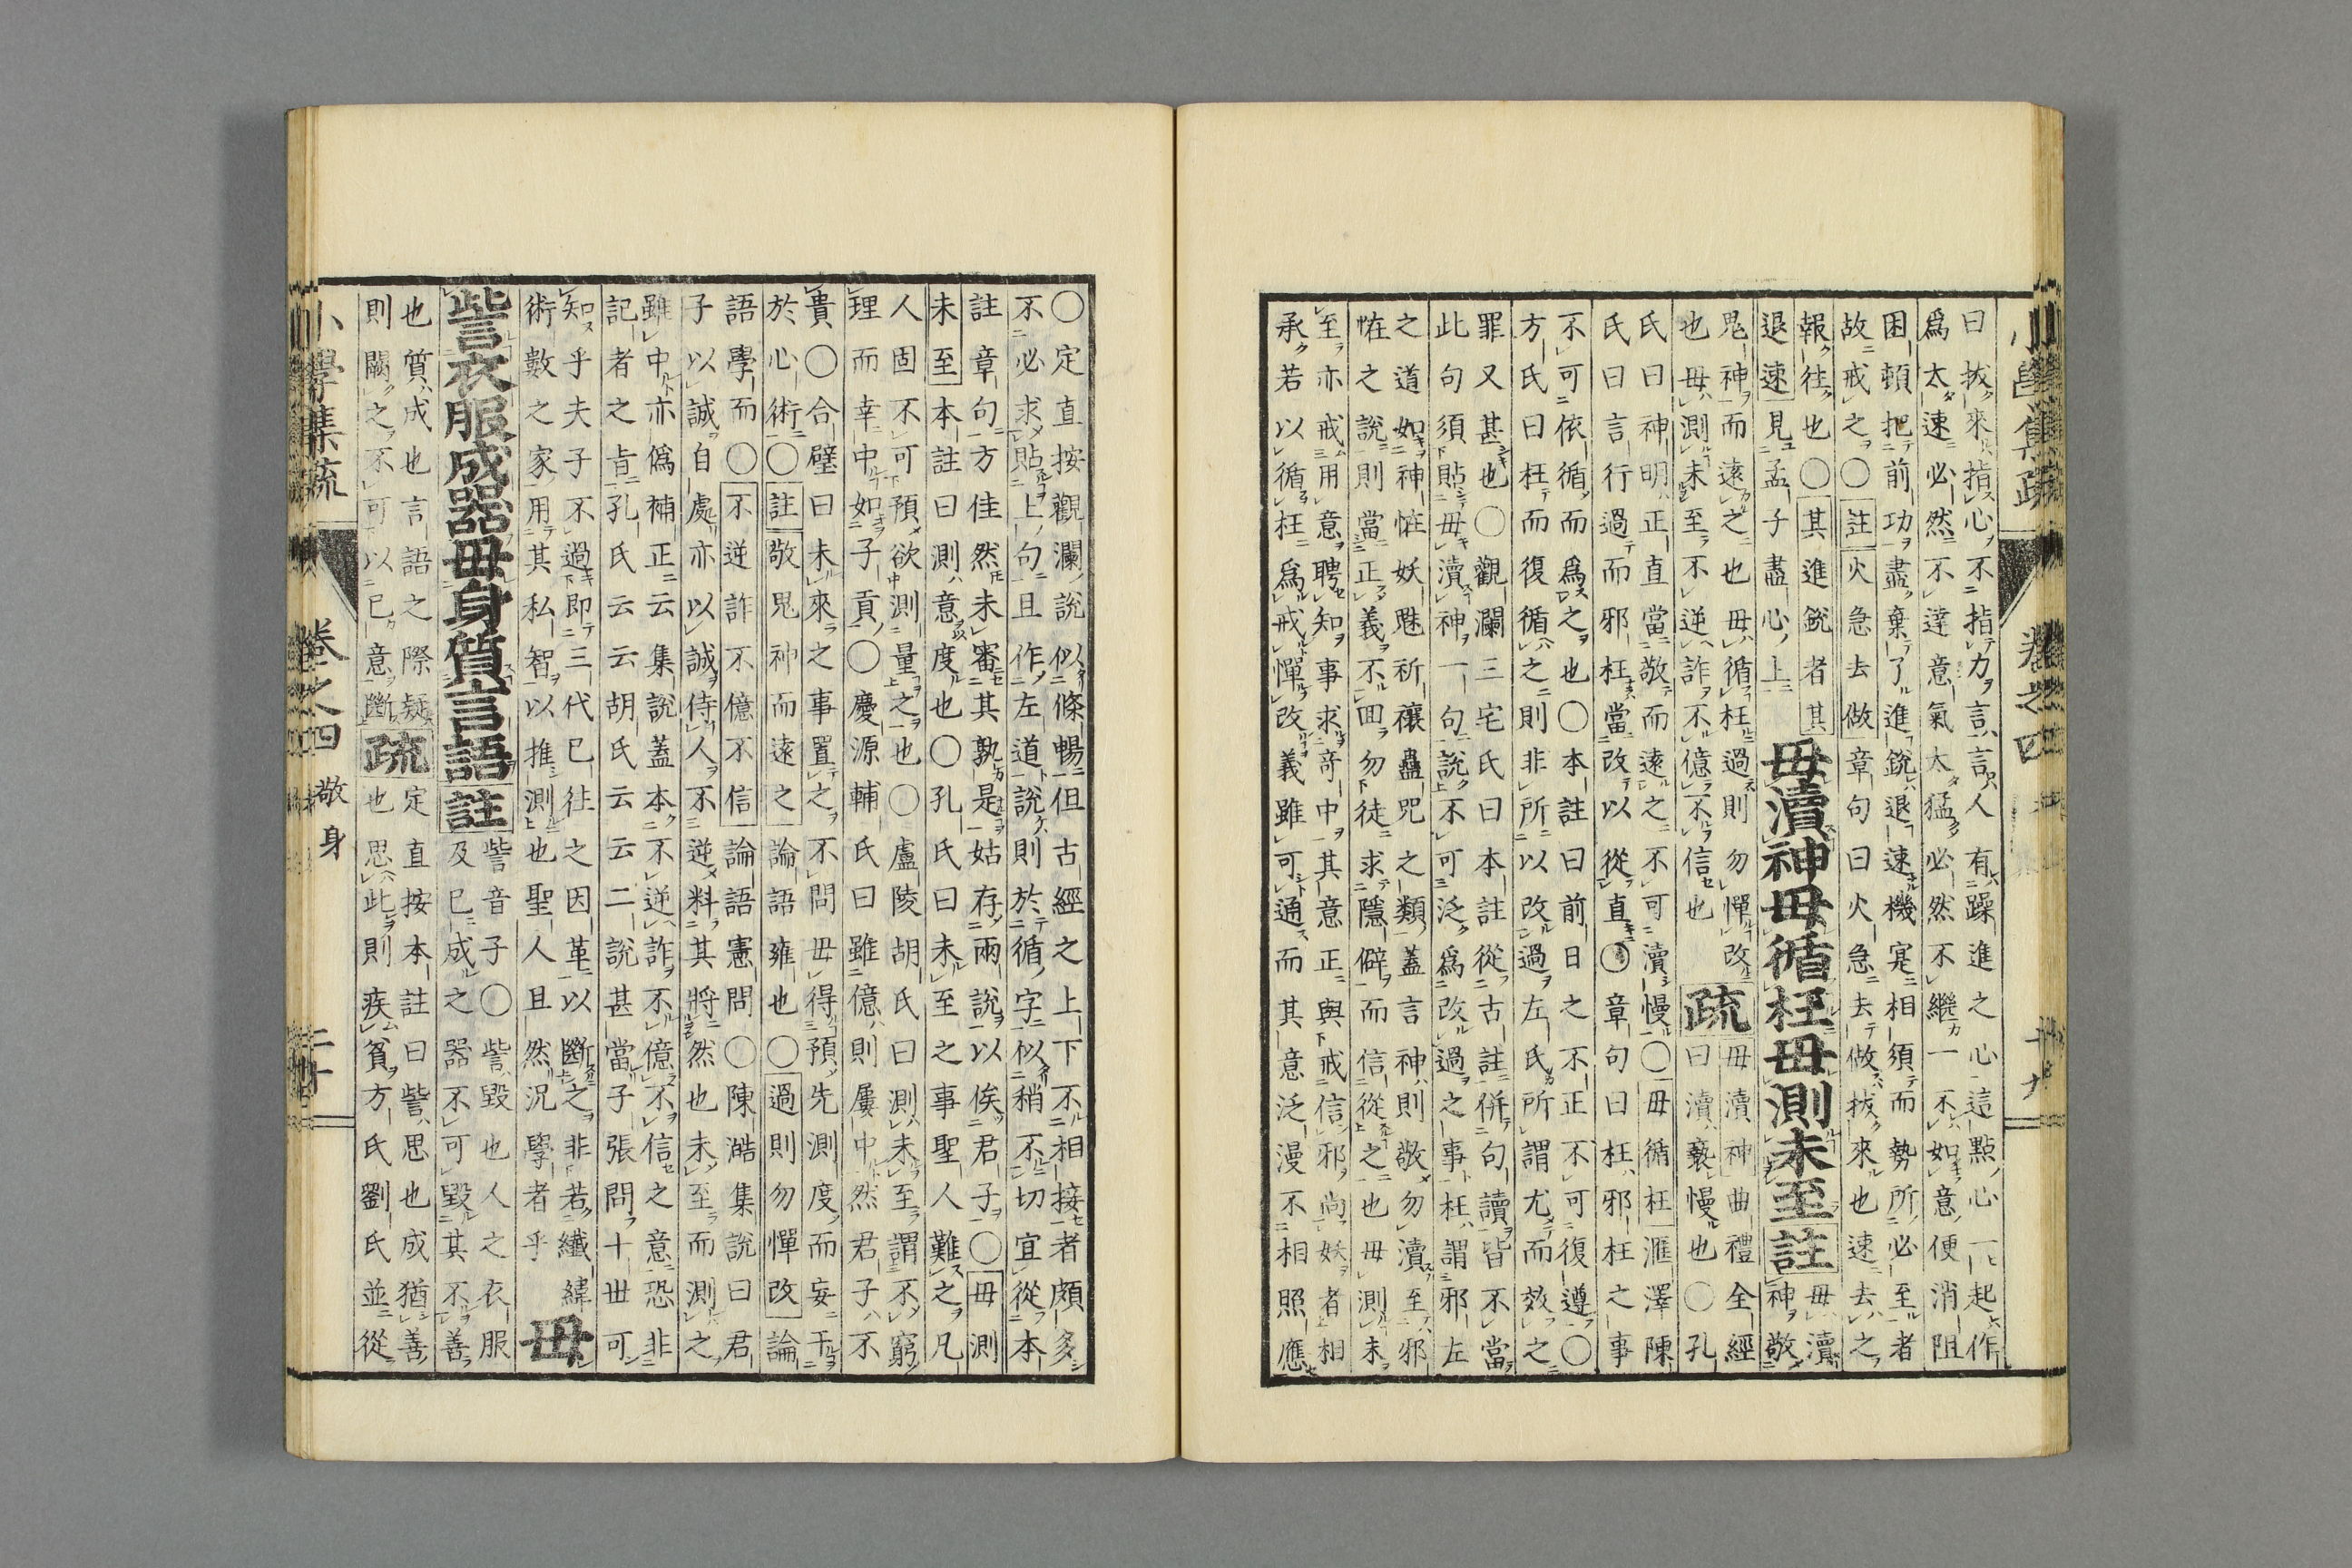 曰拔來指心不指力言言人有躁進之心這點心一起作
爲太速必然不達意氣太猛必然不繼一不如意便消阻
困頓把前功盡棄了進銳退速機寔相須而勢所必至者
故戒之〇註火急去做章句曰火急去做拔來也速去之
報往也〇其進銳者其
退速見孟子盡心上
毋瀆神毋循枉毋測未至註
毋瀆
神敬
鬼神而遠之也毋循枉過則勿憚改
也毋測未至不逆詐不億不信也
疏
毋瀆神曲禮全經
曰瀆褻慢也〇孔
氏曰神明正直當敬而遠之不可瀆慢〇毋循枉滙澤陳
氏曰言行過而邪枉當改以從直〇章句曰枉邪枉之事
不可依循而爲之也〇本註曰前日之不正不可復遵〇
方氏曰枉而復循之則非所以改過左氏所謂尤而效之
罪又甚也〇觀瀾三宅氏曰本註從古註併句讀皆不當
此句須貼毋瀆神一句說不可泛爲改過之事枉謂邪左
之道如神恠妖魅祈禳蠱咒之類蓋言神則敬勿瀆至邪
恠之說則當正義不回勿徒求隱僻而信從之也毋測未
至亦戒用意聘知事求奇中其意正與戒信邪尚妖者相
承若以循枉爲戒憚改義雖可通而其意泛漫不相照應
〇定直按觀瀾說似條暢但古經之上下不相接者頗多
不必求貼上句且作左道說則於循字似稍不切宜從本
註章句方佳然未審其孰是姑存兩說以俟君子〇毋測
未至本註曰測意度也〇孔氏曰未至之事聖人難之凡
人固不可預欲測量之也〇盧陵胡氏曰測未至謂不窮
理而幸中如子貢〇慶源輔氏曰雖億則屢中然君子不
貴〇合璧曰未來之事置之不問毋得預先測度而妄干
於心術〇註敬鬼神而遠之論語雍也〇過則勿憚改論
語學而〇不逆詐不億不信論語憲問〇陳澔集說曰君
子以誠自處亦以誠侍人不逆料其將然也未至而測之
雖中亦僞補正云集說蓋本不逆詐不億不信之意恐非
記者之旨孔氏云云胡氏云云二說甚當子張問十世可
知乎夫子不過即三代已往之因革以斷之非若纖緯
術數之家用其私智以推測也聖人且然況學者乎
毋
訾衣服成器毋身質言語註
訾音子〇訾毀也人之衣服
及已成之器不可毀其不善
也質成也言語之際疑
則闕之不可以已意斷
疏
定直按本註曰訾思也成猶善
也思此則疾貧方氏劉氏並從
小學集疏 卷之四 敬身 二十